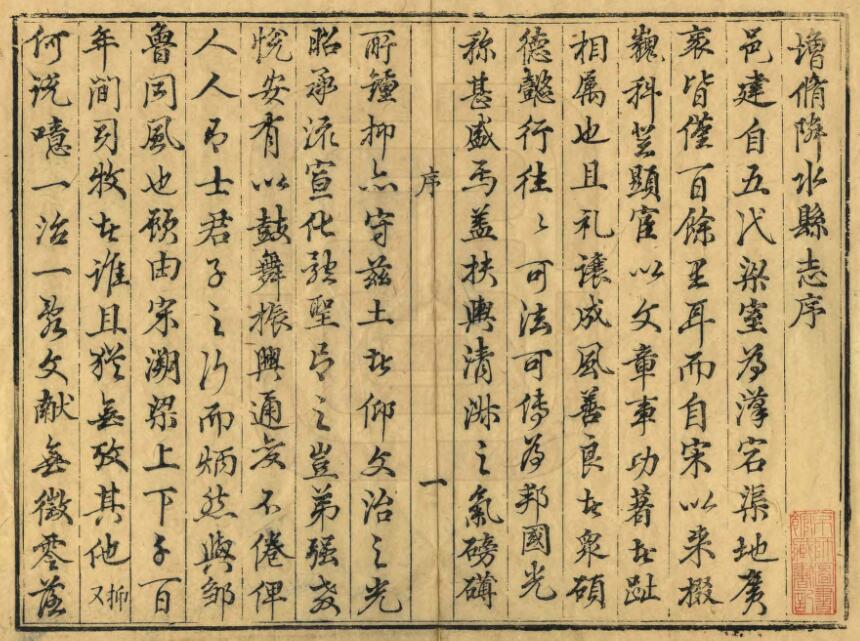 增脩隣水縣志序
邑建自五代梁室為漢宕渠地廣
袤皆僅百餘里耳而自宋以来掇
巍科登顯宦以文章事功著者趾
相属也且礼讓成風善良者衆碩
德懿行徃々可法可傳為邦國光
称甚盛焉蓋扶輿清淑之氣磅礴
序 一
所鐘抑亦守兹土者仰文治之光
昭承流宣化聖之豈弟强教
悦安有以鼓舞振興通变不倦俾
人人士君子之行而炳然與鄒
魯同風也顧由宋溯梁上下千百
年間司牧者誰且猶無攷其他抑又
何说噫一治一亂文献無徵零落
京師圖書
館藏書記